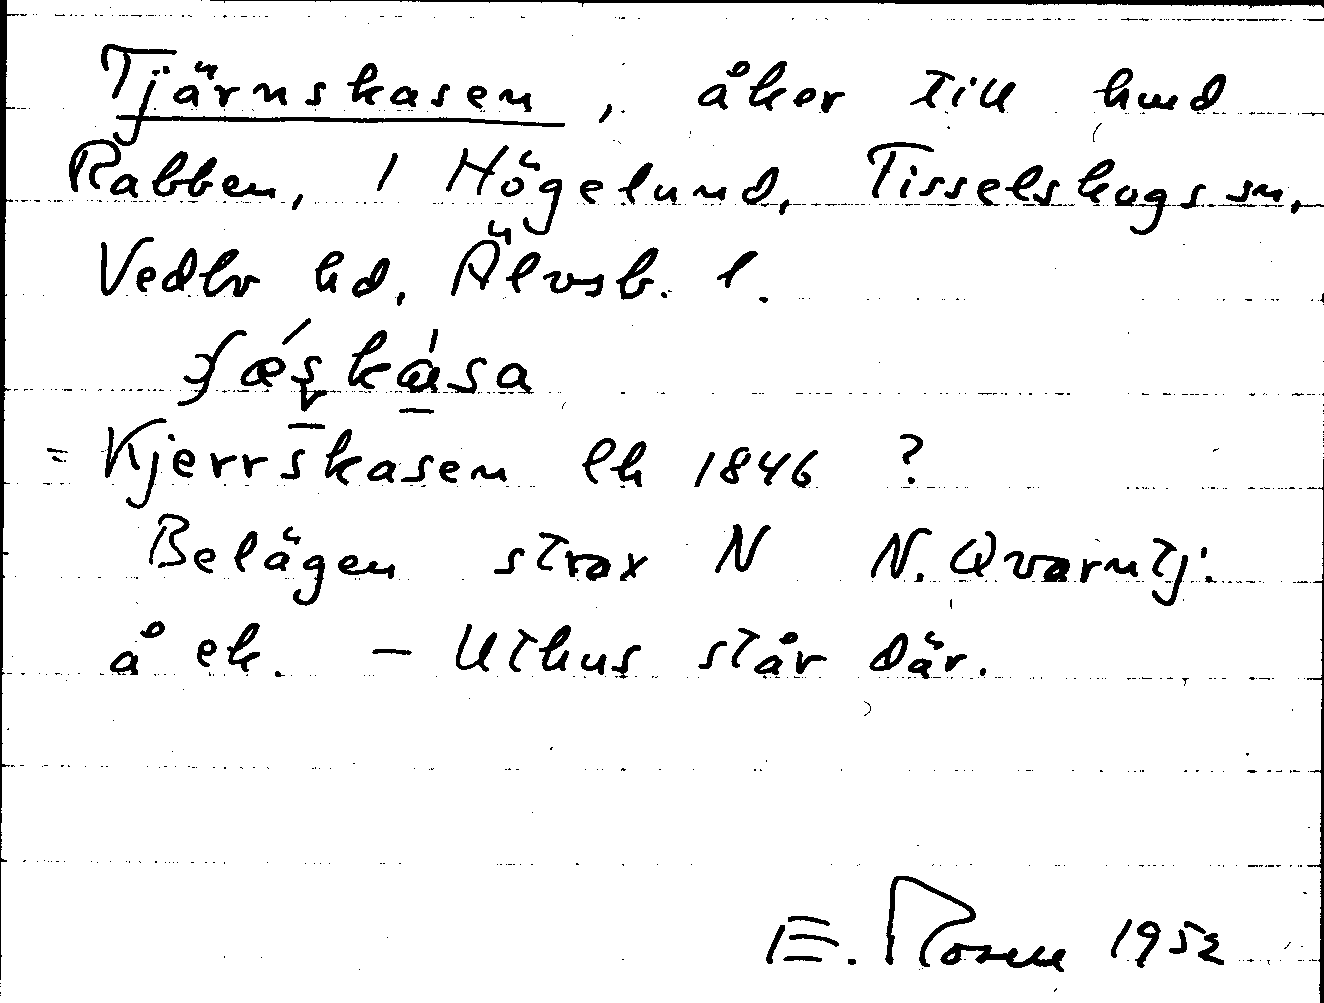 Tjärnskasen, åker till hmd
Rabben, 1 Högelund, Tisselskogs sn,
Vedbo hd, Älvsb. l.
= Kjerrskasen lh 1846 ?
Belägen strax N N. Qvarntj.
å ek. – Uthus står där.
E. Rosen 1952